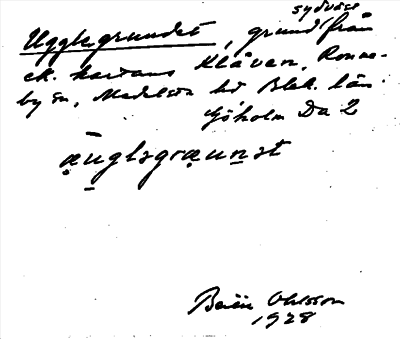 sydväst
Ugglegrundet, grund från
ek. kartans Klåven, Ronne-
by sn, Medelsta hd Blek. län
Göholm Da 2
æugləgræunət
Berih Ohlsson
1928